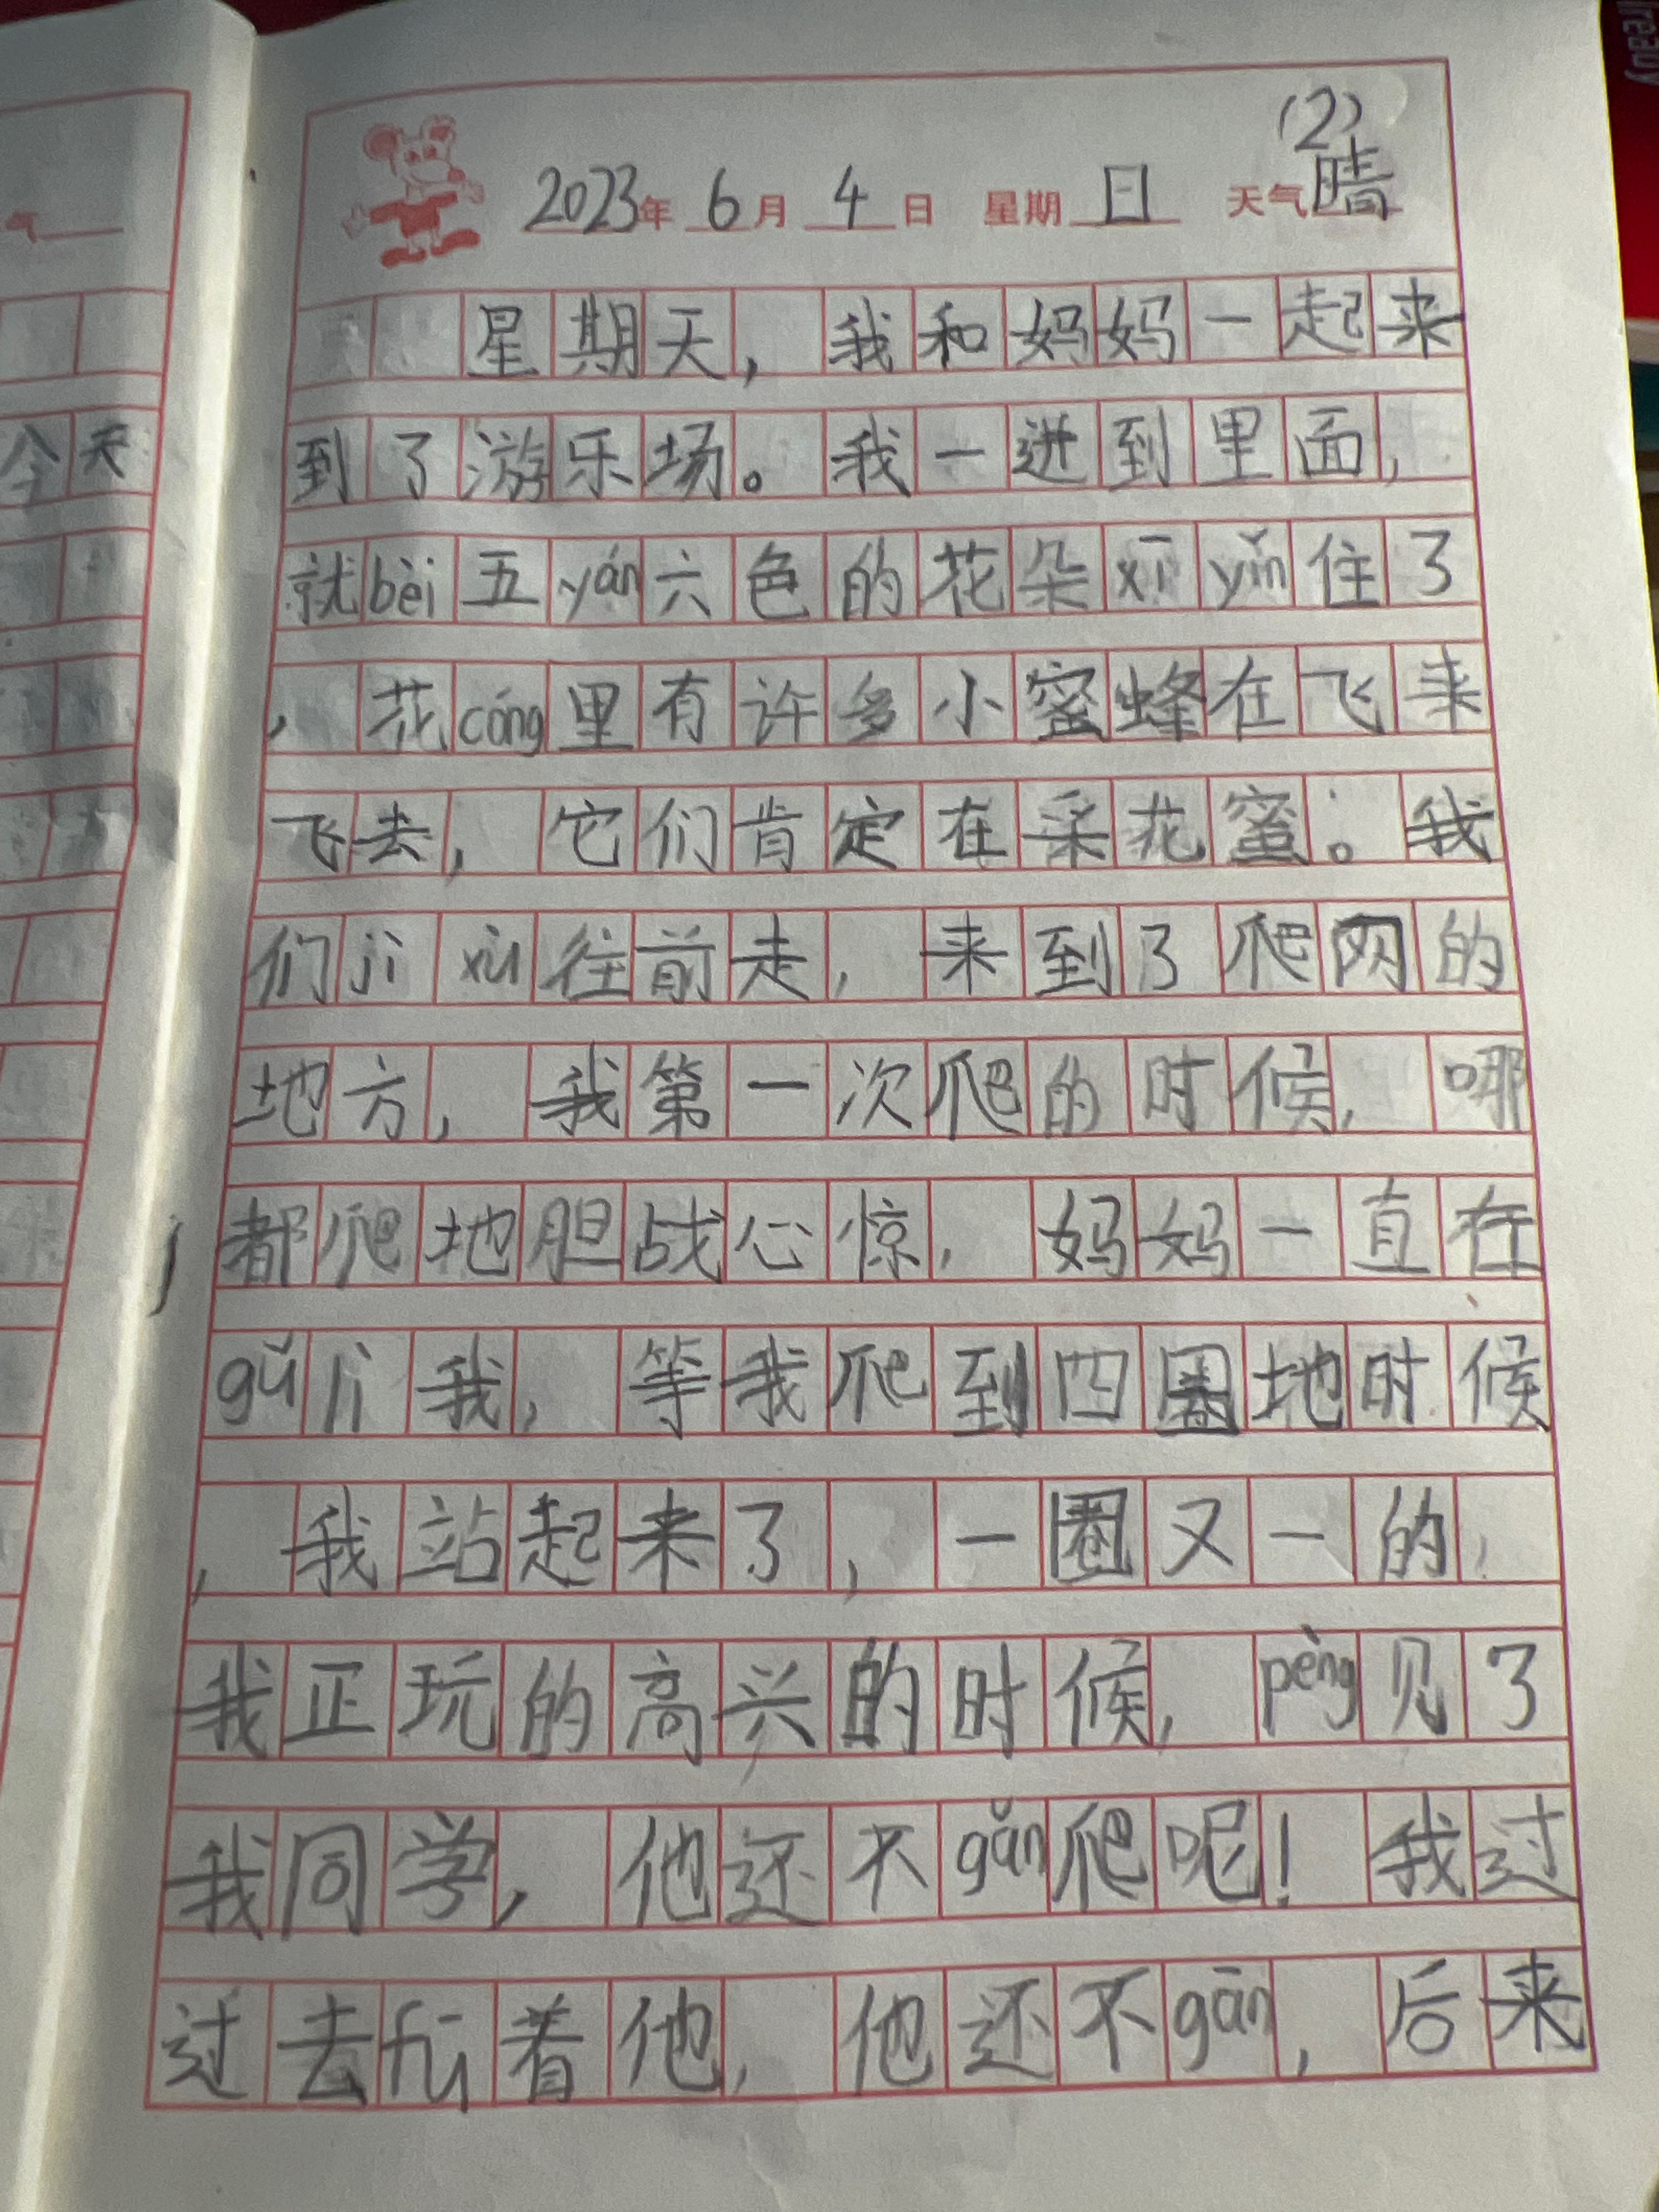 (2)
2023年 6月 4日 星期日 天气晴
星期天，我和妈妈一起来
到了游乐场。我一进到里面，
就bèi五yán六色的花朵xī yǐn住了
，花cóng里有许多小蜜蜂在飞来
飞去，它们肯定在采花蜜。我
们jì xù往前走，来到了爬网的
地方，我第一次爬的时候，哪
都爬地胆战心惊，妈妈一直在
gǔ lì我，等我爬到四圈地时候
，我站起来了，一圈又一的，
我正玩的高兴的时候，pèng见了
我同学，他还不gǎn爬呢！我过
过去fū着他，他还不gān，后来
气
今天
iready